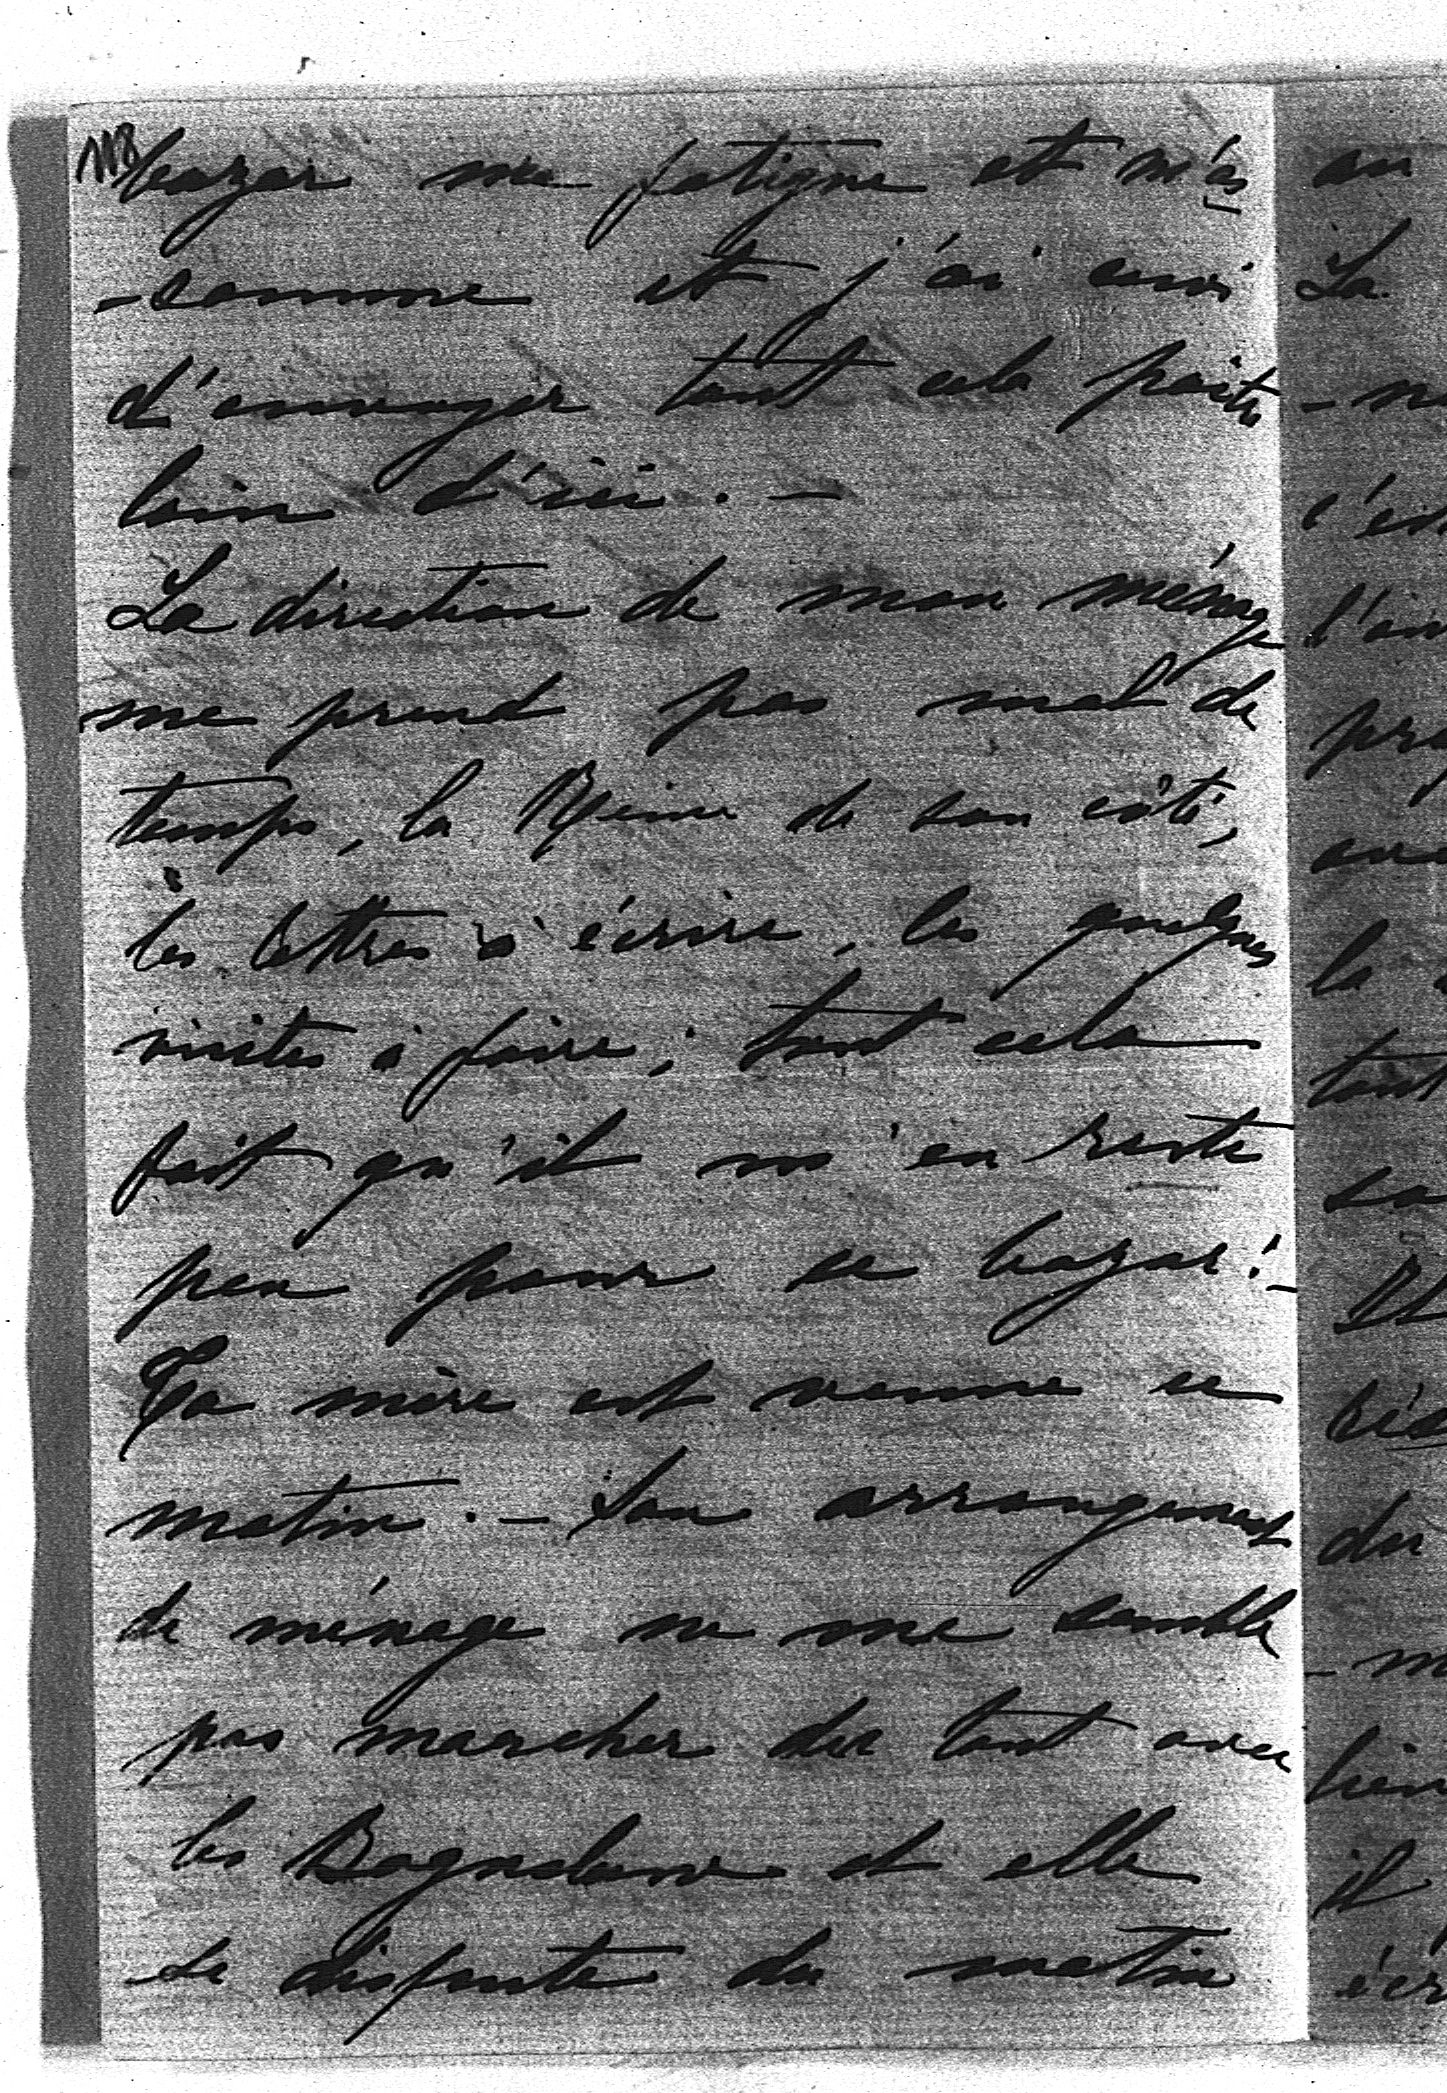 118
bazar me fatigue et m'as
-somme et j'ai envi
d'envoyer tout cela paître
loin d'ici. -
La direction de mon ménage
me prend pas mal de
temps, la Reine de son côté,
les lettres à écrire, les quelques
visites à faire; tout cela
fait qu'il m'en reste
peu pour ce bazar! -
Ta mère est venue ce
matin. - Son arrangement
de ménage ne me semble
pas marcher du tout avec
les et elle
se dispute du matin